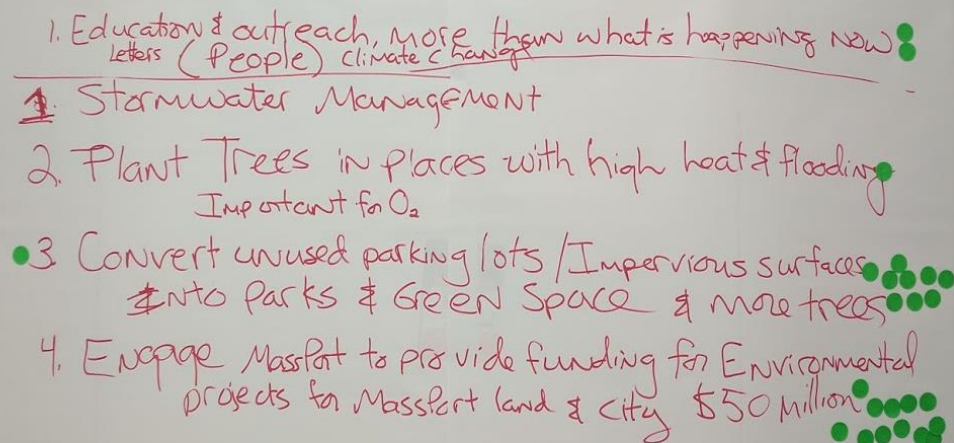 1. Education & outreach, more than what is happening now
Letters (People) climate change
1. Stormwater Management
2. Plant Trees in places with high heat & flooding
Important for O₂
3 Convert unused parking lots / Impervious surfaces
Into Parks & Green Space & more trees
4. Engage MassPort to provide funding for Environmental
projects for Massport land & city $50 million